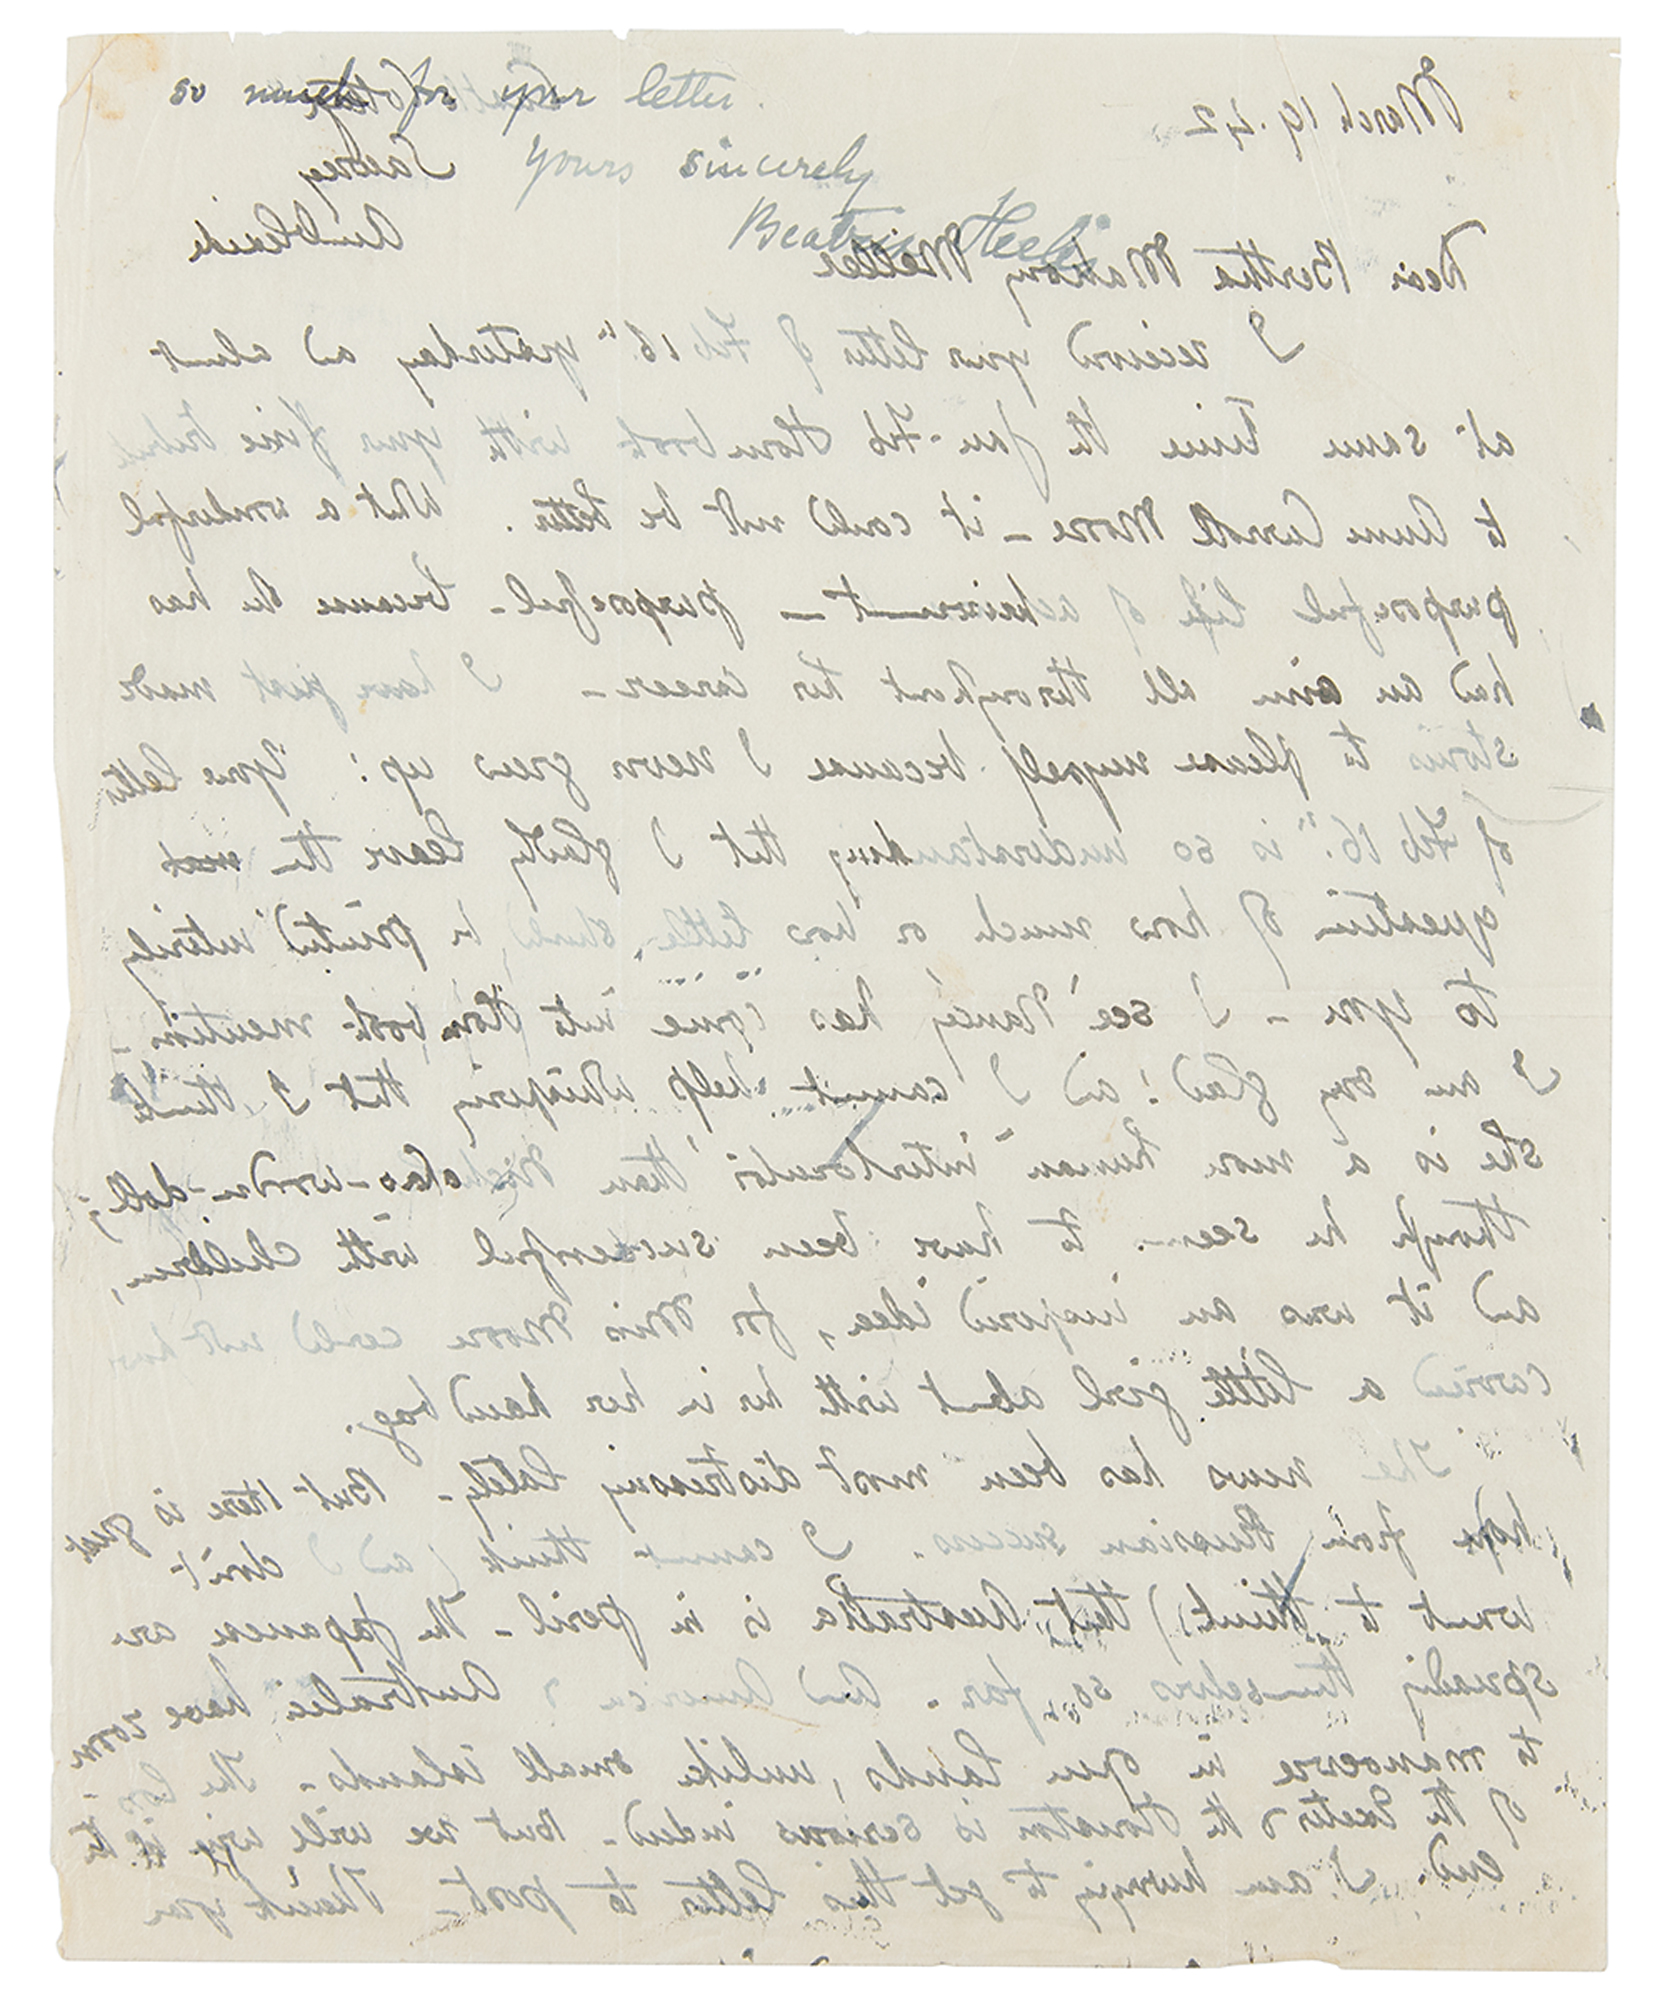 March 19. 42
Castle Cottage
Sawrey
Ambleside
Dear Bertha Mahony Miller
I received your letter of Feb 16th yesterday and about
at same time the Jan-Feb Horn book with your fine tribute
to Anne Carroll Moore – it could not be better. What a wonderful
purposeful life of acheivement – purposeful – because she has
had an aim all throughout her career – I have just made
stories to please myself because I never grew up! Your letter
of Feb 16th is so understanding that I gladly leave the
question of how much or how little, should be printed
to you – I see 'Nancy' has come into Horn book mention –
I am very glad! and I cannot help whispering that I think
she is a more human interlocutor than Nicholas-wooden-doll;
though he seems to have been successful with children,
and it was an inspired idea, for Miss Moore could not have
carried a little girl about with her in her hand bag.
The news has been most distressing lately – But there is great
hope from Russian success. I cannot think (and I don't
want to think) that Australia is in peril – The Japanese are
spreading themselves so far. And America & Australia have room
to manoevre in open lands, unlike small islands – The loss
of the Exeter & the Houston is serious indeed – But we will win it the
end. I am hurrying to get this letter to post – Thank you
so much for your letter.
Yours sincerely
Beatrix Heelis